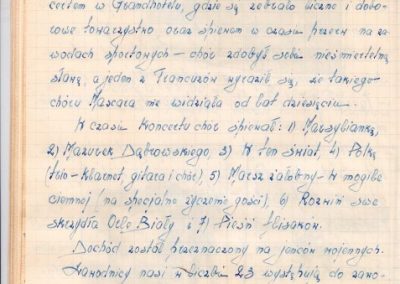 certem w Grandhotelu, gdzie się zebrało liczne i dobo-
rowe towarzystwo oraz śpiewem w czasie przerw na za-
wodach sportowych – chór zdobył sobie nieśmiertelną
sławę, a jeden z Francuzów wyraził się, że takiego
chóru Mascara nie widziała od lat dziesięciu.
W czasie koncertu chór śpiewał: 1) Marsyliankę,
2) Mazurek Dąbrowskiego, 3) W ten świat, 4) Polkę
(trio – klarnet, gitara i chór), 5) Marsz żałobny – W mogile
ciemnej (na specjalne życzenie gości), 6) Rozwiń swe
skrzydła Orle Biały i 7) Pieśń flisaków.
Dochód został przeznaczony na jeńców wojennych.
Zawodnicy nasi w liczbie 23 występują do zawo-